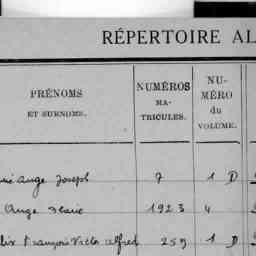 RÉPERTOIRE AL
PRÉNOMS
ET SURNOMS.
NUMÉROS
MA-
TRICULES.
NU-
MÉRO
du
VOLUME.
Ange Joseph 7 1 D
Ange 1923 4
François Victor Alfred 259 1 D